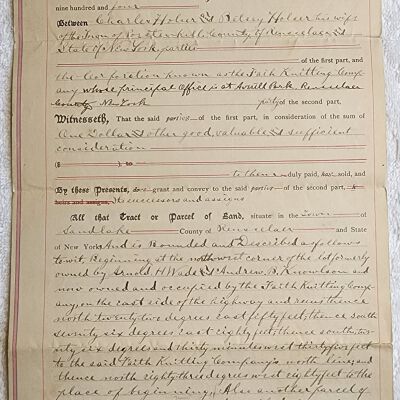 nine hundred and four
Between Charles Hober & Betsey Hober his wife
of the Town of County of Rensselaer &
State of New York, parties
of the first part, and
the Corporation known as the Faith Knitting Comp-
any whose principal Office is at Averill Park, Rensselaer
County New York party of the second part,
Witnesseth, That the said parties of the first part, in consideration of the sum of
One Dollar & other good, valuable & sufficient
consideration
($ ) to
to them duly paid, have sold, and
By these Presents, do grant and convey to the said parties of the second part,
heirs and assigns, its successors and assigns
All that Tract or Parcel of Land, situate in the Town of
Sandlake County of Rensselaer and State
of New York, And is Bounded and Described as follows
to wit, Beginning at the north west corner of the lot formerly
owned by Arnold H Wade & Andrew B. Knowlson and
now owned and occupied by the Faith Knitting Comp-
any on the east side of the highway and runs thence
north twenty two degrees east fifty feet, thence south
seventy six degrees east eighty feet, thence south twen-
ty six degrees and thirty minutes west thirty five feet
to the said Faith Knitting Company's north line, and
thence north eighty three degrees west eighty feet to the
place of beginning, Also another parcel of